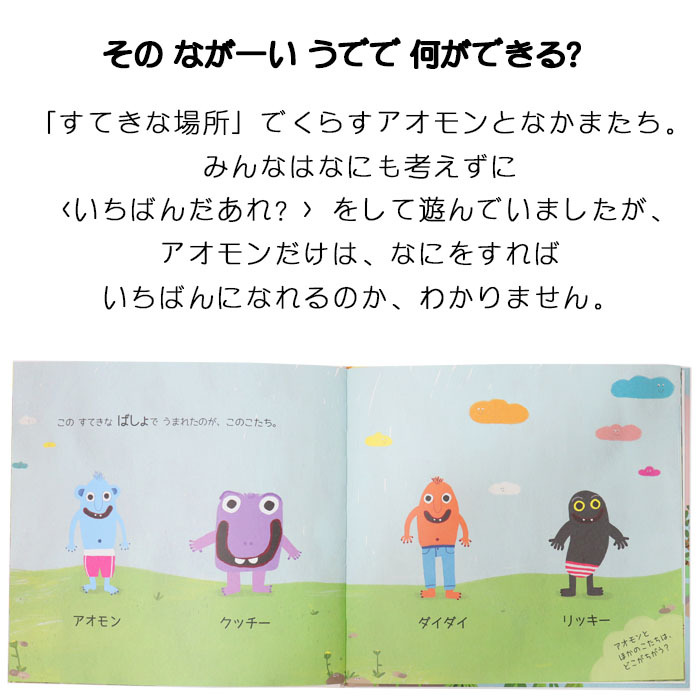 その なが―い うでで 何ができる?
「すてきな場所」でくらすアオモンとなかまたち。
みんなはなにも考えずに
〈いちばんだあれ? 〉をして遊んでいましたが、
アオモンだけは、なにをすれば
いちばんになれるのか、わかりません。
この すてきな ばしょで うまれたのが、このこたち。
アオモン
クッチー
ダイダイ
リッキー
アオモンと
ほかのこたちは、
どこがちがう?